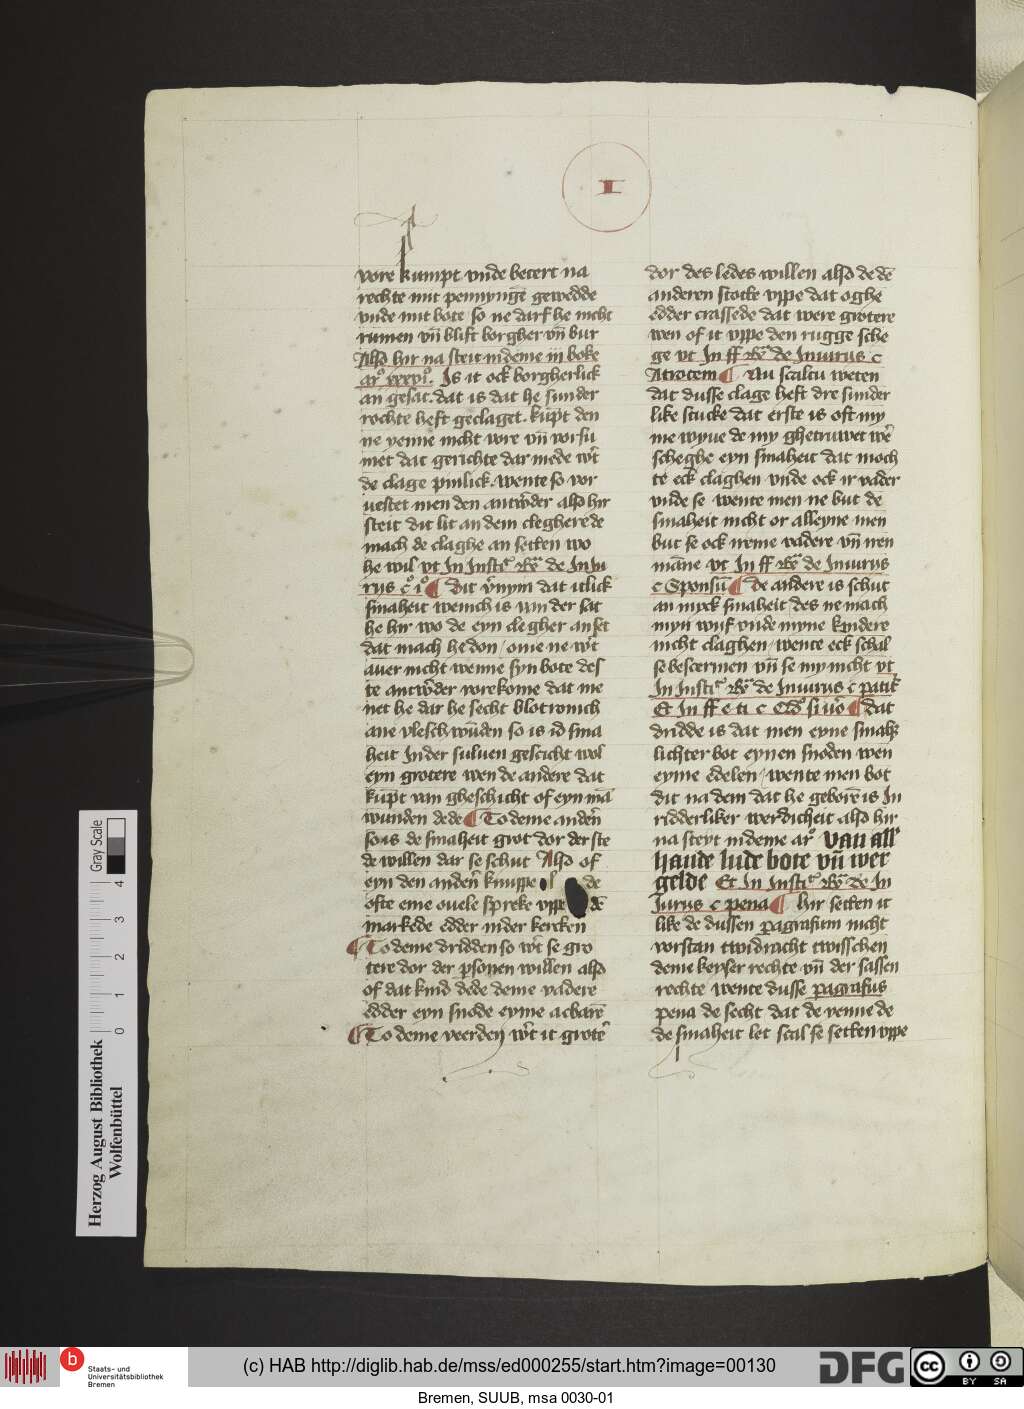 I
vore kumpt vnde betert na
rechte mit pennynge᷃ gewedde
vnde mit bote so ne darf he nicht
rumen vn̄ blift borgher vn̄ bur
Also hir na steit indeme iij boke
ar° xxxvj°. Is it ock borgherlick
an gesat. dat is dat he sunder
rochte heft geclaget. kūpt den
ne yenne nicht vore vn̄ vorsu
met dat gerichte dar mede wͬt
de clage pinlick. wente so vor
uestet men den antwͬder also hir
steit dit lit an dem cleghere de
mach de claghe an setten wo
he wil vt In Insti͛ Rͤ de Iniu
rijs c° i° ¶ dit vͬnym dat itlick
smaheit wenich is van der sat
he hir wo de eyn clegher an set
dat mach he don / onie ne wͬt
auer nicht wenne syn bote des
te antwͬder vorekome dat me
net he dar he secht blotronich
ane vlesch wūden so is id sma
heit Inder suluen gescicht wol
eyn grotere wen de andere dat
kūpt van gheschicht of eyn mā
wunden dede ¶ To deme anden̄
so is de smaheit grot dor der ste
de willen dar se schut Also of
eyn den anden̄ knuppe de
ofte eme ouele spreke vppe dē
markede edder inder kercken
¶ To deme dridden so wͬt se gro
tere dor der psonen willen also
of dat kind dede deme vadere
edder eyn snode eyme acbarē
¶ To deme veerden wͬt it grotͬ
dor des ledes willen also de dē
anderen stotte vppe dat oghe
edder crassede dat were grotere
wen of it vppe den rugge sche
ge vt In ff Rͤ de Iniurijs c
Atrocem ¶ Nu scaltu weten
dat dusse clage heft dre sunder
like stucke dat erste is oft my
me wyue de my ghetruwet wē
scheghe eyn smaheit dat moch
te eck claghen vnde ock ir vader
vnde se wente men ne but de
smaheit nicht or alleyne men
but se ock nreme vadere vn̄ nren
māne vt In ff Rͤ de Iniurijs
c Sponsū ¶ de andere is schut
an myck smaheit des ne mach
myn wiif vnde myne kindere
nicht claghen / wente eck schal
se bescermen vn̄ se my nicht vt
In Insti͛ Rͤ de Iniurijs c patit͛
Et In ff e ti c Cͬd° si vō ¶ dat
dridde is dat men eyne smah͛
lichter bot eynen snoden wen
eyme edelen / wente men bot
dit na dem dat he geborē is In
ridderliker werdicheit also hir
na steyt indeme ar° van all͛
hande lude bote vn̄ wer
gelde Et In Insti͛ Rͤ de In
Iurijs c pena ¶ hir setten it
like de dussen pagrafum nicht
vorstan twidracht twisschen
deme keyser rechte vn̄ der sassen
rechte wente dusse pagrafus
pena de secht dat de yenne de
de smaheit let scal se setten vppe
Herzog August Bibliothek
Wolfenbüttel
Gray Scale
0 1 2 3 4
b
Staats- und
Universitätsbibliothek
Bremen
(c) HAB http://diglib.hab.de/mss/ed000255/start.htm?image=00130
DFG
cc BY SA
Bremen, SUUB, msa 0030-01